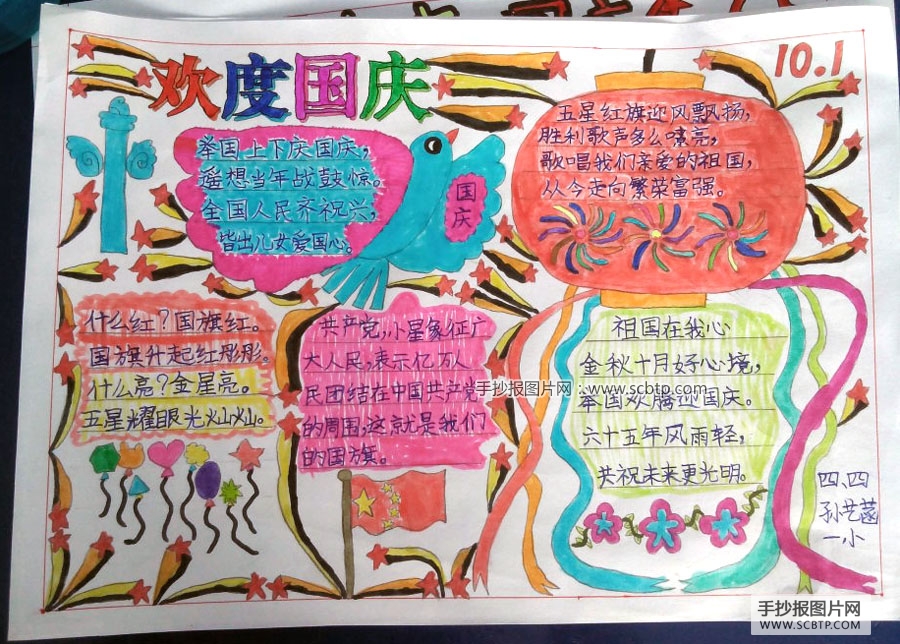 欢度国庆
10.1
举国上下庆国庆，
遥想当年战鼓惊。
全国人民齐祝兴，
皆出儿女爱国心。
国庆
五星红旗迎风飘扬，
胜利歌声多么嘹亮，
歌唱我们亲爱的祖国，
从今走向繁荣富强。
什么红？国旗红。
国旗升起红彤彤。
什么亮？金星亮。
五星耀眼光灿灿。
共产党，小星象征广
大人民，表示亿万人
民团结在中国共产党
的周围，这就是我们
的国旗。
祖国在我心
金秋十月好心境，
举国欢腾迎国庆。
六十五年风雨轻，
共祝未来更光明。
四、四
孙艺菡
一小
手抄报图片网：www.scbtp.com
手抄报图片网
WWW.SCBTP.COM